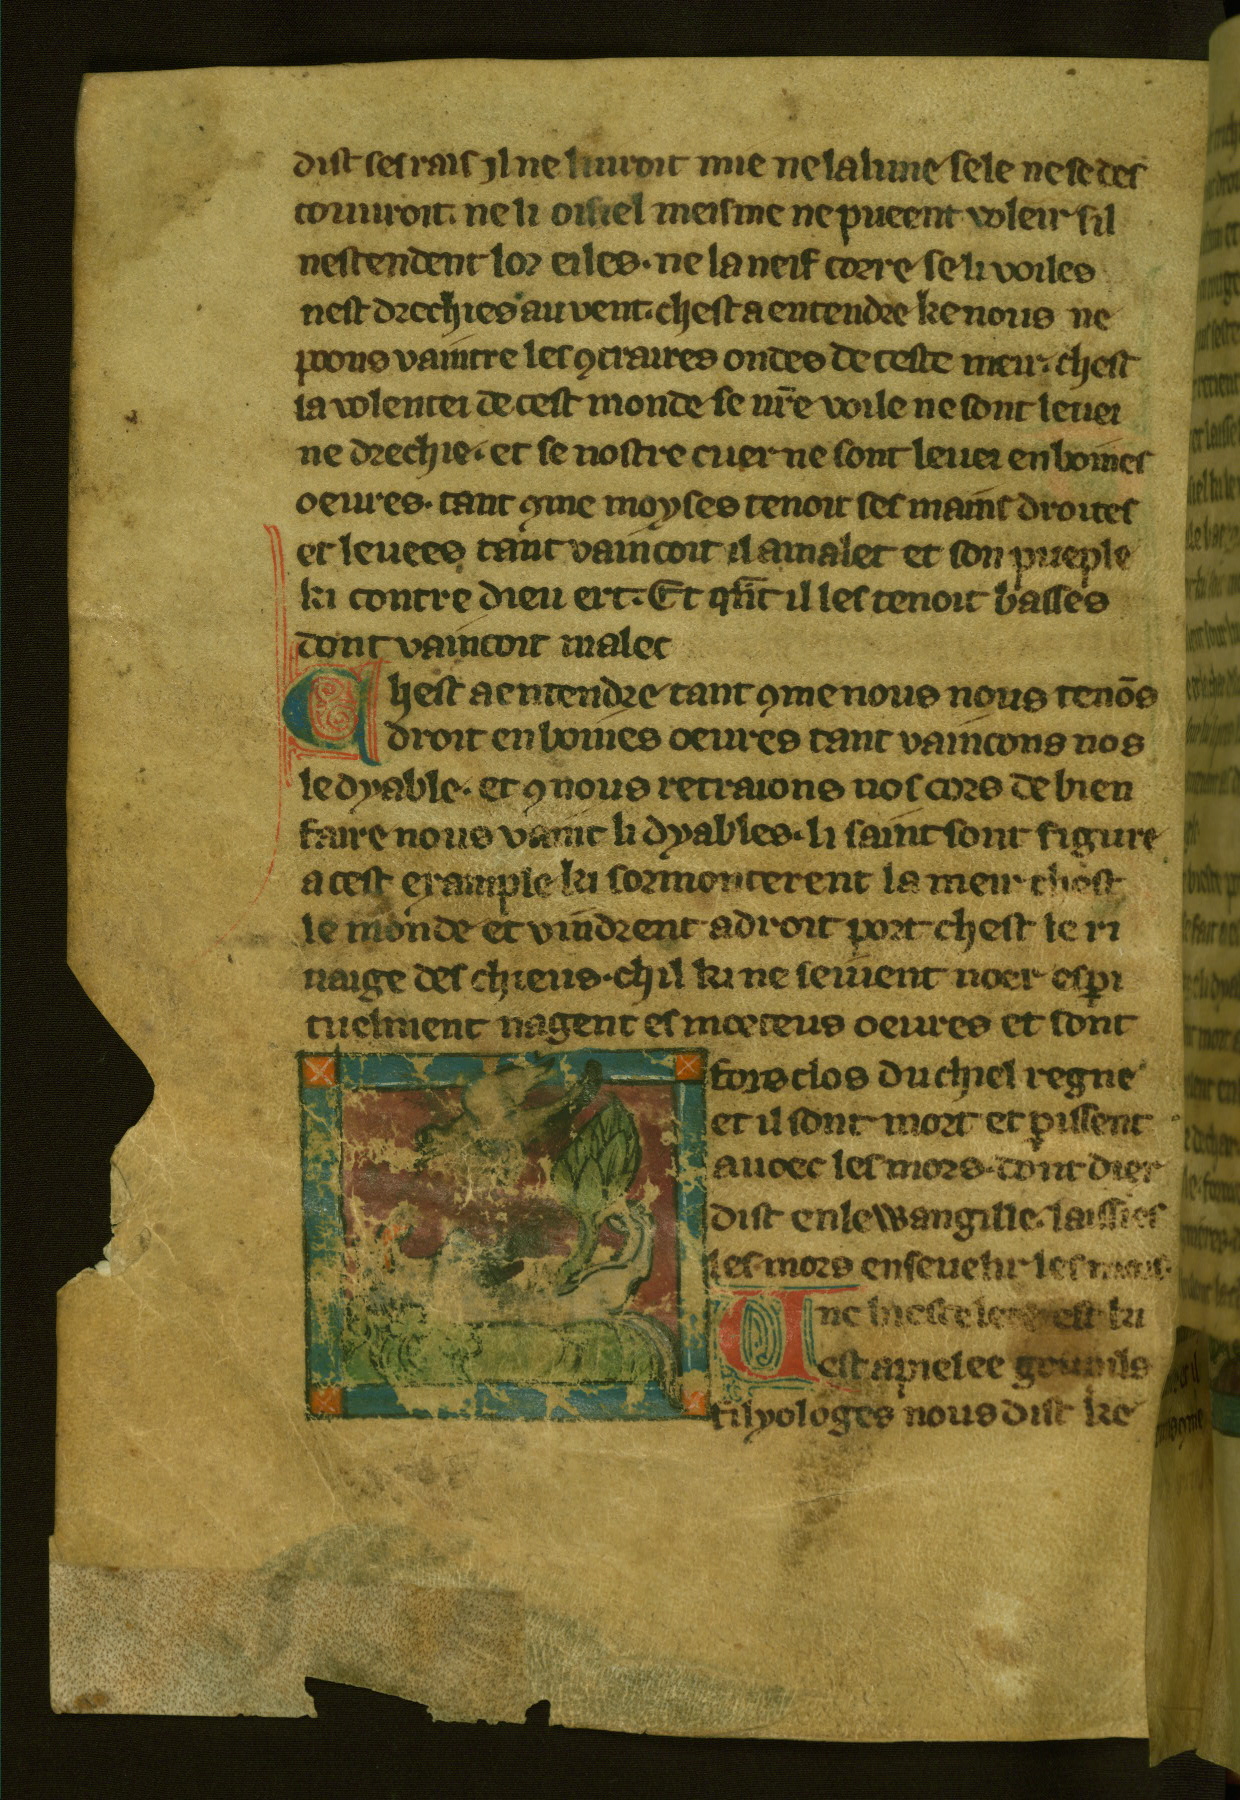 dist ses rais jl ne liuroit mie ne la lune sele ne se des
couuroit. ne li oisiel meisme ne pueent voleir sil
nestendent lor eiles. ne la neif corre se li voiles
nest drechies au vent. chest a entendre ke nous ne
poons vaintre les ꝯtraires ondes de ceste meir. chest
la volentei de cest monde se nr̄e voile ne sont leuei
ne drechie. et se nostre cuer ne sont leuei en boines
oeures. tant ꝯme moyses tenoit ses mains droites
et leuees tant vaincoit il amalec et son pueple
ki contre dieu ert. Et qn̄t il les tenoit basses
dont vaincoit malec
Chest a entendre tant ꝯme nous nous tenōs
droit en boines oeures tant vaincons nos
le dyable. et ꝯ nous retraions nos cors de bien
faire nous vaint li dyables. li saint sont figure
a cest example ki sormonterent la meir chest
le monde et vindrent a droit port chest le ri
uaige des chieus. chil ki ne seuient noer esꝑi
tuelment nagent es morteus oeures et sont
fors clos du chiel regne
et il sont mort et ꝑissent
auoec les mors. dont dier
dist en lewangille. laissies
les mors enseuelir les mors.
Vne bieste est ki
est apielee goupils
filyologes nous dist ke